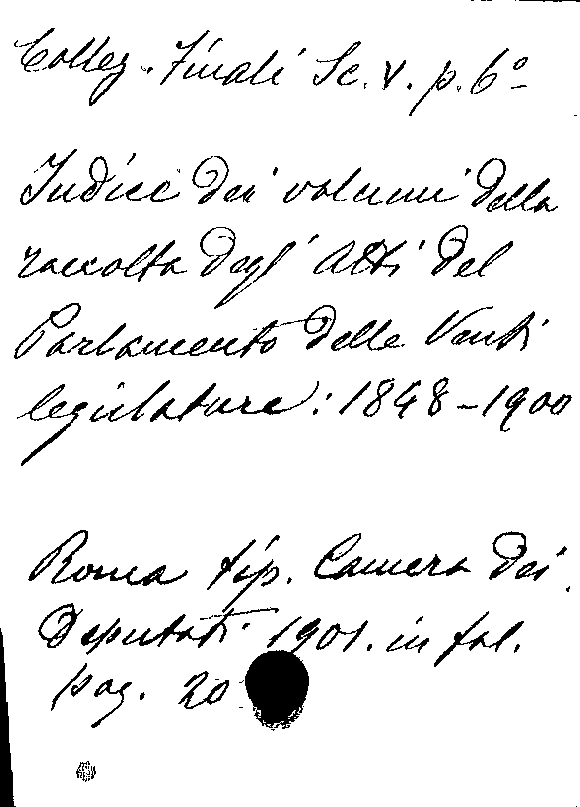 Collez. Finali Sc. V. p. 6º
Indice dei volumi della
raccolta degli Atti del
Parlamento delle Venti
legislature: 1848-1900
Roma tip. Camera dei
Deputati 1901. in fol.
pag. 20